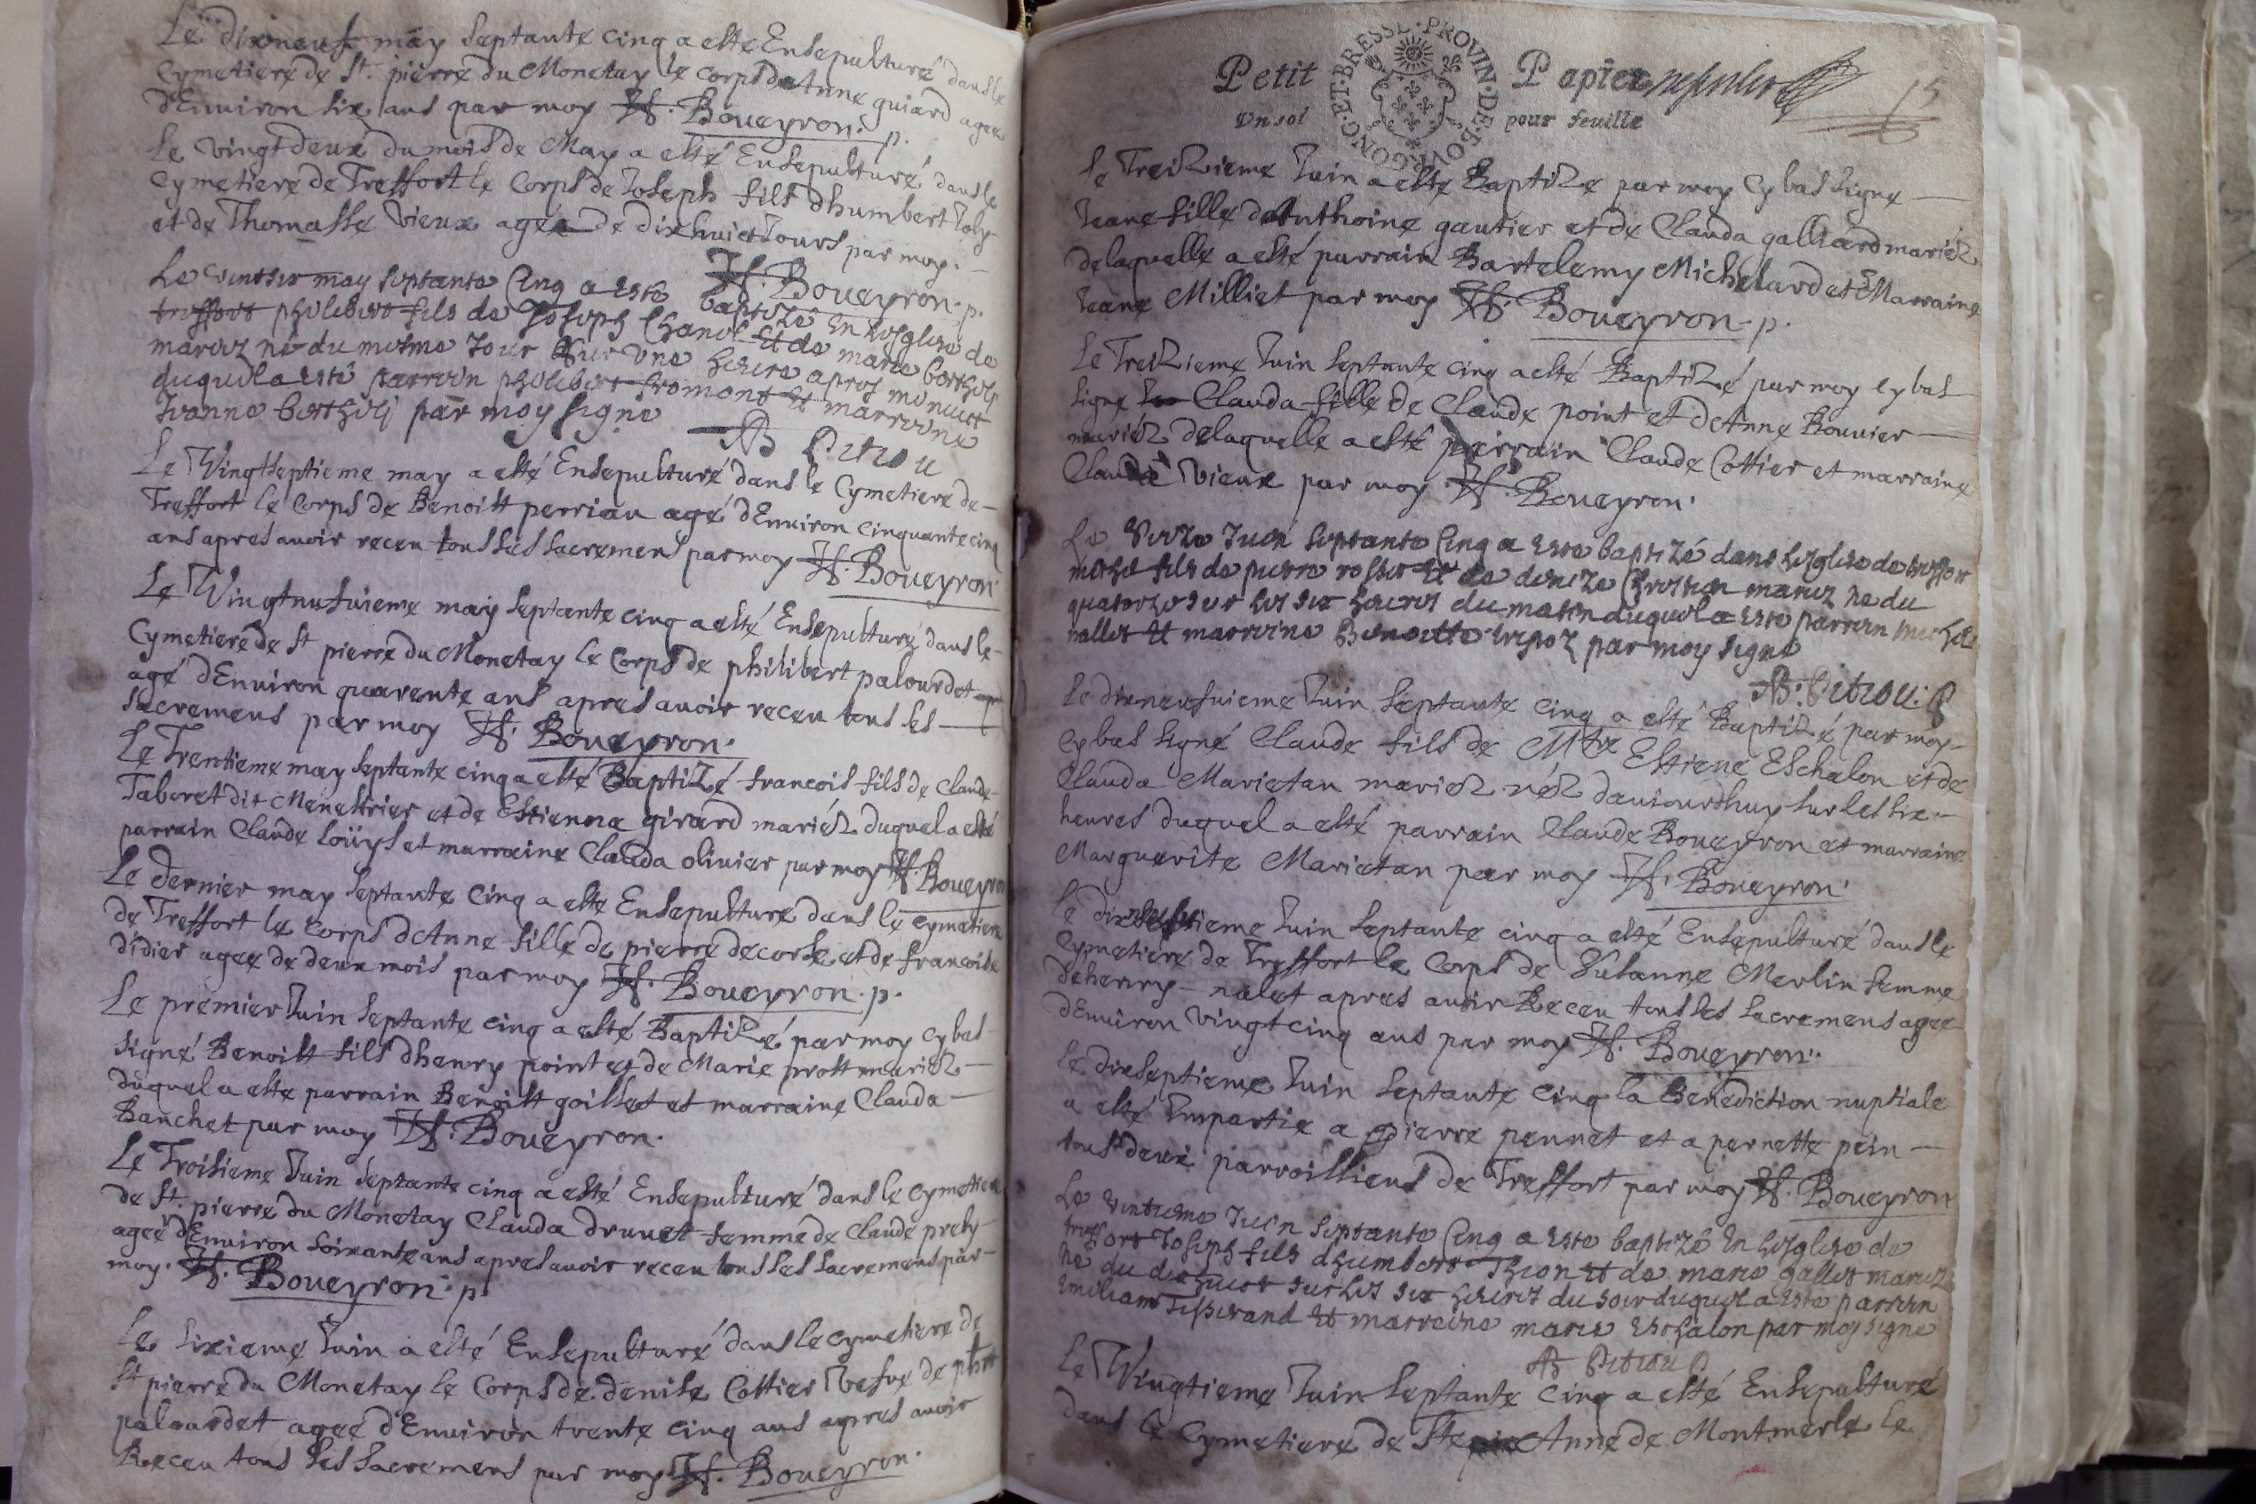 Le dixneuf may Septante cinq a esté Ensepulturé dans le
Cymetiere de St. pierre du Monetay le Corps de Anne guiard agee
d'Enuiron six ans par moy H. Boueyron. p.
Le Vingtdeux du mois de May a esté Ensepulturé dans le
Cymetiere de Treffort le Corps de Joseph fils dhumbert Joly
et de Thomasse Vieux agée de dixhuict Jours par moy.
H. Boueyron. p.
Le vintsix may septante Cinq a este baptizé en lesglise de
treffort philibert fils de Joseph Chanel et de marie berthely
mariez né du mesme Jour sur une heure apres menuict
duquel a esté parrein philibert fromont et marreine
Jeanne berthely par moy signe
Le Vingtseptieme may a esté Ensepulturé dans le Cymetiere de
Treffort le Corps de Benoist perrian agé d'Enuiron cinquante cinq
ans apres auoir receu tous les sacremens par moy H. Boueyron.
Le Vingtneufuieme may septante cinq a esté Ensepulturé dans le
Cymetiere de St pierre du Monetay le Corps de philibert palourdet
agé d'Enuiron quarente ans apres auoir receu tous les
sacremens par moy H. Boueyron.
Le Trentieme may septante cinq a esté Baptizé francois fils de Claude
Taboret dit Menestrier et de Estienna girard mariéz duquel a esté
parrain Claude Loüys et marraine Clauda oliuier par moy H. Boueyron
Le dernier may septante Cinq a este Ensepulturé dans le cymetiere
de Treffort le Corps d'Anne fille de pierre decorse et de francoise
didier agee de deux mois par moy H. Boueyron. p.
Le premier Juin septante cinq a esté Baptizé par moy cybas
signé Benoist fils dhenry point et de Marie prost mariez
duquel a este parrain Benoist goillet et marraine Clauda
Banchet par moy H. Boueyron.
Le Troisieme Juin septante cinq a esté Ensepulturé dans le Cymetiere
de St. pierre du Monetay Clauda druuet femme de Claude prely
agee d'Enuiron soixante ans apres auoir receu tous les sacremens par
moy. H. Boueyron. p.
Le sixieme Juin a esté Ensepulturé dans le cymetiere de
St pierre du Monetay le Corps de denise Cottier Vefue de phbt
palourdet agee d'Enuiron trente cinq ans apres auoir
Receu tous les sacremens par moy H. Boueyron.
Petit Papier 15
Vn sol pour feuille
PROVIN·DE·BOVRGONG·ET·BRESSE
Le Treizieme Juin a esté Baptizé par moy cybas signe
Jeane fille d'Anthoine gautier et de Clauda galliard mariéz
de laquelle a esté parrain Bartelemy Michelard et Marraine
Jeane Milliet par moy H. Boueyron. p.
Le Treizieme Juin septante cinq a esté Baptizé par moy cybas
signe Clauda fille de Claude point et d'Anne Bouuier
mariéz de laquelle a esté parrain Claude Cottier et marraine
Claudá Vieux par moy H. Boueyron.
Juin septante Cinq a este baptizé dans lesglise de treffort
michel fils de pierre rosset et de denize mariez ne du
quatorze sur les six heures du matin duquel a este parrein michel
nallet et marreine Benoitte par moy signe
Le dixneufuieme Juin septante cinq a esté Baptizé par moy
cybas signé Claude fils de Mtre Estiene Eschalon et de
Clauda Marietan mariez néz daujourdhuy sur les six
heures duquel a esté parrain Claude Boueyron et marraine
Marguerite Marietan par moy H. Boueyron.
Le dixseptieme Juin septante cinq a esté Ensepulturé dans le
Cymetiere de Treffort le Corps de Susanne Merlin femme
de henry nalet apres auoir Receu tous les sacremens agee
d'Enuiron Vingtcinq ans par moy H. Boueyron.
Le dixseptieme Juin septante cinq la Benediction nuptiale
a esté Impartie a pierre pennet et a pernette pein
tous deux parroissiens de Treffort par moy H. Boueyron
Le vintieme Juin septante Cinq a este baptizé en lesglise de
treffort Joseph fils dhumbert Thion et de marie gallet mariez
né du dixhuict sur les six heures du soir duquel a este parrein
Emiliam Tisserand et marreine marie Eschalon par moy signe
Le Vingtieme Juin Septante Cinq a esté Ensepulturé
dans le Cymetiere de Ste Anne de Montmerle le